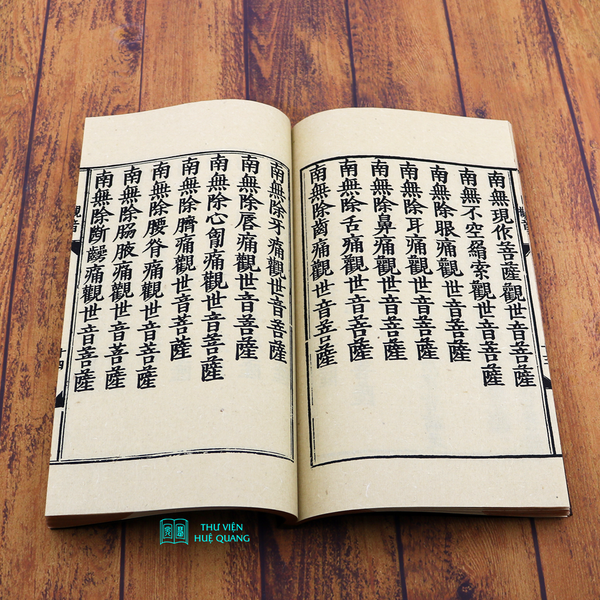 南無現作菩薩觀世音菩薩
南無不空羂索觀世音菩薩
南無除眼痛觀世音菩薩
南無除耳痛觀世音菩薩
南無除鼻痛觀世音菩薩
南無除舌痛觀世音菩薩
南無除齒痛觀世音菩薩
南無除牙痛觀世音菩薩
南無除唇痛觀世音菩薩
南無除心胷痛觀世音菩薩
南無除臍痛觀世音菩薩
南無除腰脊痛觀世音菩薩
南無除脇腋痛觀世音菩薩
南無除斷痛觀世音菩薩
觀音
十四
觀音
THƯ VIỆN
HUỆ QUANG